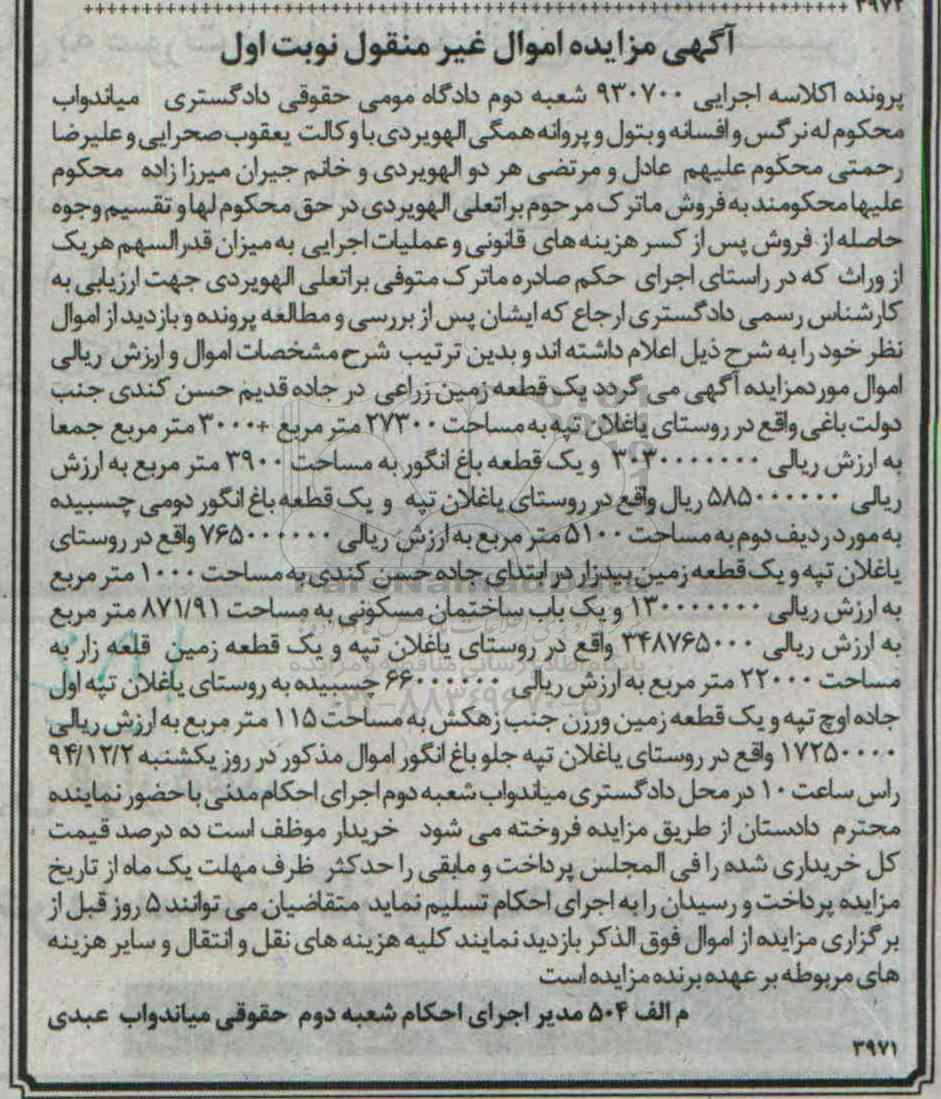 ۳۹۷۲
آگهی مزایده اموال غیر منقول نوبت اول
پرونده اکلاسه اجرایی ۹۳۰۷۰۰ شعبه دوم دادگاه مومی حقوقی دادگستری میاندواب
محکوم له نرگس و افسانه و بتول و پروانه همگی الهویردی با وکالت یعقوب صحرایی و علیرضا
رحمتی محکوم علیهم عادل و مرتضی هر دو الهویردی و خانم جیران میرزا زاده محکوم
علیها محکومند به فروش ماترک مرحوم براتعلی الهویردی در حق محکوم لها و تقسیم وجوه
حاصله از فروش پس از کسر هزینه های قانونی و عملیات اجرایی به میزان قدرالسهم هریک
از وراث که در راستای اجرای حکم صادره ماترک متوفی براتعلی الهویردی جهت ارزیابی به
کارشناس رسمی دادگستری ارجاع که ایشان پس از بررسی و مطالعه پرونده و بازدید از اموال
نظر خود را به شرح ذیل اعلام داشته اند و بدین ترتیب شرح مشخصات اموال و ارزش ریالی
اموال موردمزایده آگهی می گردد یک قطعه زمین زراعی در جاده قدیم حسن کندی جنب
دولت باغی واقع در روستای یاغلان تپه به مساحت ۲۷۳۰۰ متر مربع +۳۰۰۰ متر مربع جمعا
به ارزش ریالی ۳۰۳۰۰۰۰۰۰۰ و یک قطعه باغ انگور به مساحت ۳۹۰۰ متر مربع به ارزش
ریالی ۵۸۵۰۰۰۰۰۰ ریال واقع در روستای یاغلان تپه و یک قطعه باغ انگور دومی چسبیده
به مورد ردیف دوم به مساحت ۵۱۰۰ متر مربع به ارزش ریالی ۷۶۵۰۰۰۰۰۰ واقع در روستای
یاغلان تپه و یک قطعه زمین بیدزار در ابتدای جاده حسن کندی به مساحت ۱۰۰۰ متر مربع
به ارزش ریالی ۱۳۰۰۰۰۰۰۰ و یک باب ساختمان مسکونی به مساحت ۸۷۱/۹۱ متر مربع
به ارزش ریالی ۳۴۸۷۶۵۰۰۰ واقع در روستای یاغلان تپه و یک قطعه زمین قلعه زار به
مساحت ۲۲۰۰۰ متر مربع به ارزش ریالی ۶۶۰۰۰۰۰۰ چسبیده به روستای یاغلان تپه اول
جاده اوچ تپه و یک قطعه زمین ورزن جنب زهکش به مساحت ۱۱۵ متر مربع به ارزش ریالی
۱۷۲۵۰۰۰۰ واقع در روستای یاغلان تپه جلو باغ انگور اموال مذکور در روز یکشنبه ۹۴/۱۲/۲
راس ساعت ۱۰ در محل دادگستری میاندواب شعبه دوم اجرای احکام مدنی با حضور نماینده
محترم دادستان از طریق مزایده فروخته می شود خریدار موظف است ده درصد قیمت
کل خریداری شده را فی المجلس پرداخت و مابقی را حدکثر ظرف مهلت یک ماه از تاریخ
مزایده پرداخت و رسیدان را به اجرای احکام تسلیم نماید متقاضیان می توانند ۵ روز قبل از
برگزاری مزایده از اموال فوق الذکر بازدید نمایند کلیه هزینه های نقل و انتقال و سایر هزینه
های مربوطه بر عهده برنده مزایده است
م الف ۵۰۴ مدیر اجرای احکام شعبه دوم حقوقی میاندواب عبدی
۳۹۷۱
ParsNamadData
پایگاه اطلاع رسانی مناقصه و مزایده
۰۲۱-۸۸۳۴۹۶۷۰-۵